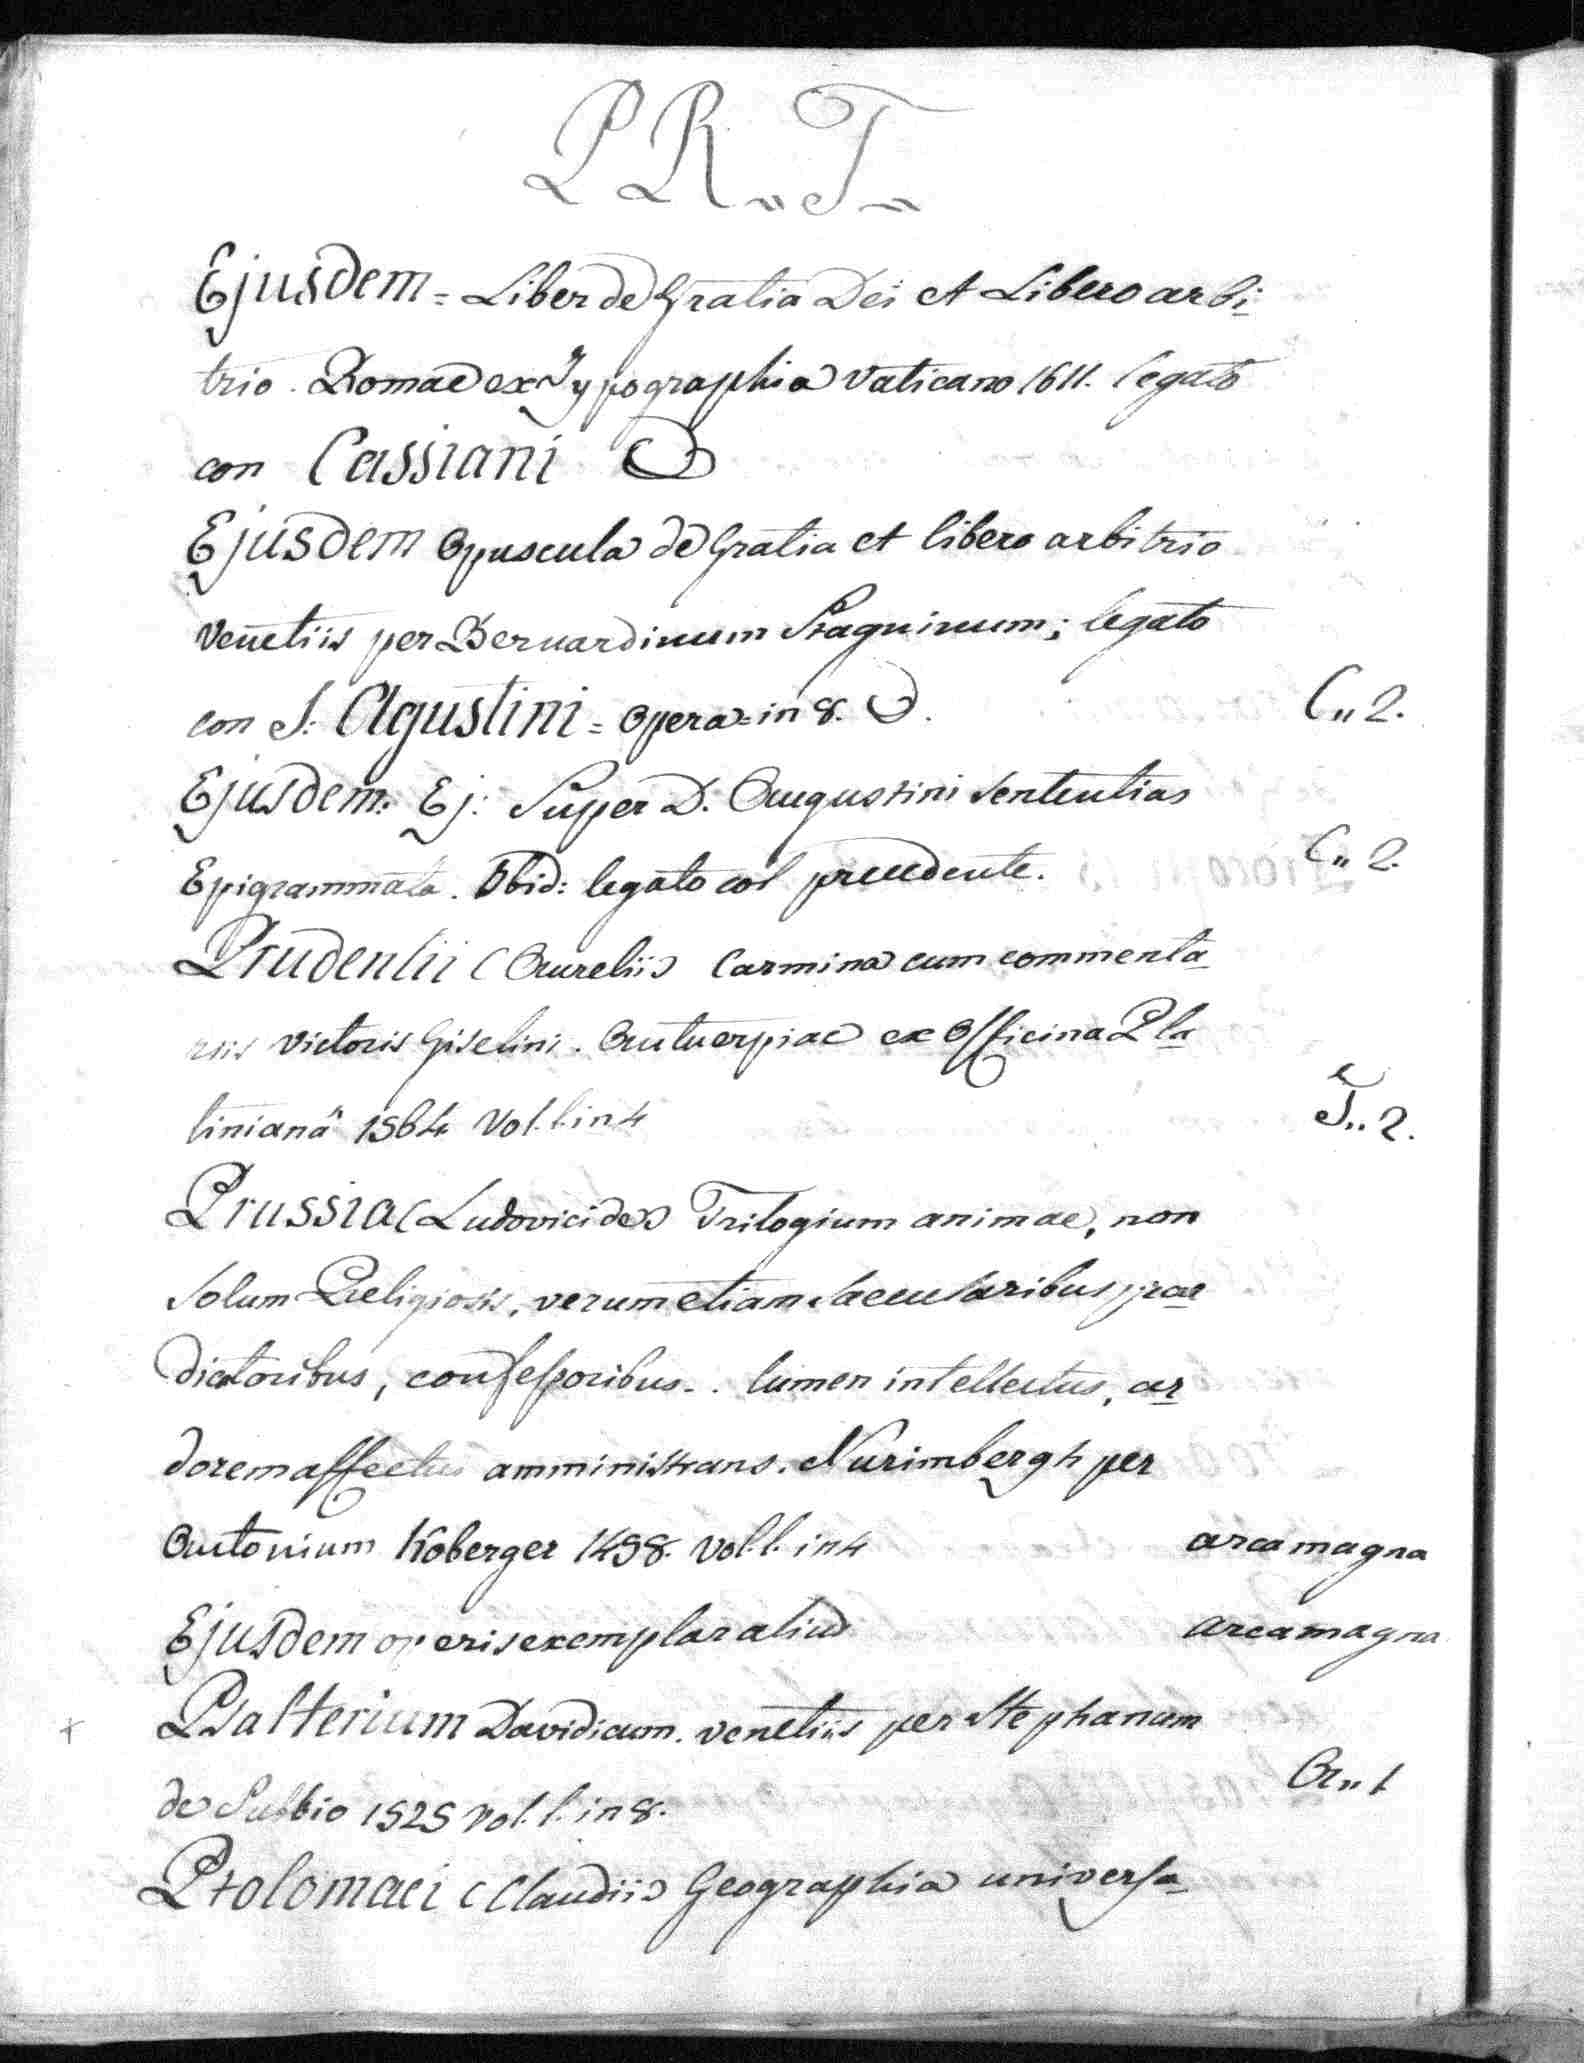 P R „ T „
Ejusdem = Liber de Gratia Dei et Libero arbi-
trio. Romae ex Typographia Vaticano 1611. legato
con Cassiani
Ejusdem Opuscula de Gratia et libero arbitrio
Venetiis per Bernardinum Stagninum; legato
con S: Agustini = Opera = in 8. C „ 2.
Ejusdem: Ej: Super D. Augustini sententias
Epigrammata. Ibid: legato col precedente. C „ 2.
Prudentii (Aurelii) Carmina cum commenta-
riis Victoris Giselini. Antuerpiae ex Officina Pla-
tiniana 1564 Vol. 1. in 4 T „ 2.
Prussia (Ludovici de) Trilogium animae, non
solum Religiosis, verum etiam saecularibus prae-
dicatoribus, confessoribus .. lumen intellectus, ar-
dorem affectus amministrans. Nurimbergh per
Antonium Koberger 1498. Vol. 1. in 4 arca magna
Ejusdem operis exemplar aliud arca magna
+ Psalterium Davidicum. Venetiis per Stephanum
de Sabbio 1525 Vol. 1. in 8. A „ 1
Ptolomaei (Claudii) Geographia universa-